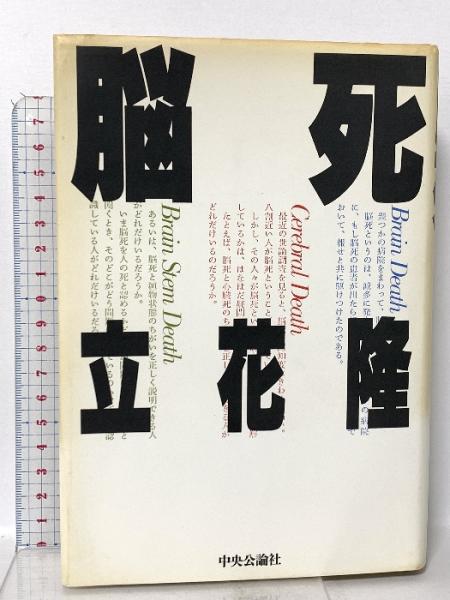 脳死
立花隆
Brain Death
幾つかの病院をまわって、
脳死というのは、滅多に発 の病院
に、もし脳死の患者が出たら で
おいて、報せと共に駆けつけたのである。
Cerebral Death
最近の世論調査を見ると、
八割近い人が脳死ということ
しかし、その人々が脳死とい
しているかは、はなはだ疑問
たとえば、脳死と心臓死のち 正 る人が
どれだけいるのだろうか。
Brain Stem Death
あるいは、脳死と植物状態のちがいを正しく説明できる人
がどれだけいるだろうか。
いま脳死を人の死と認める と
聞くとき、そのどこがどう問 ているの 認
識している人がどれだけいるだ
中央公論社